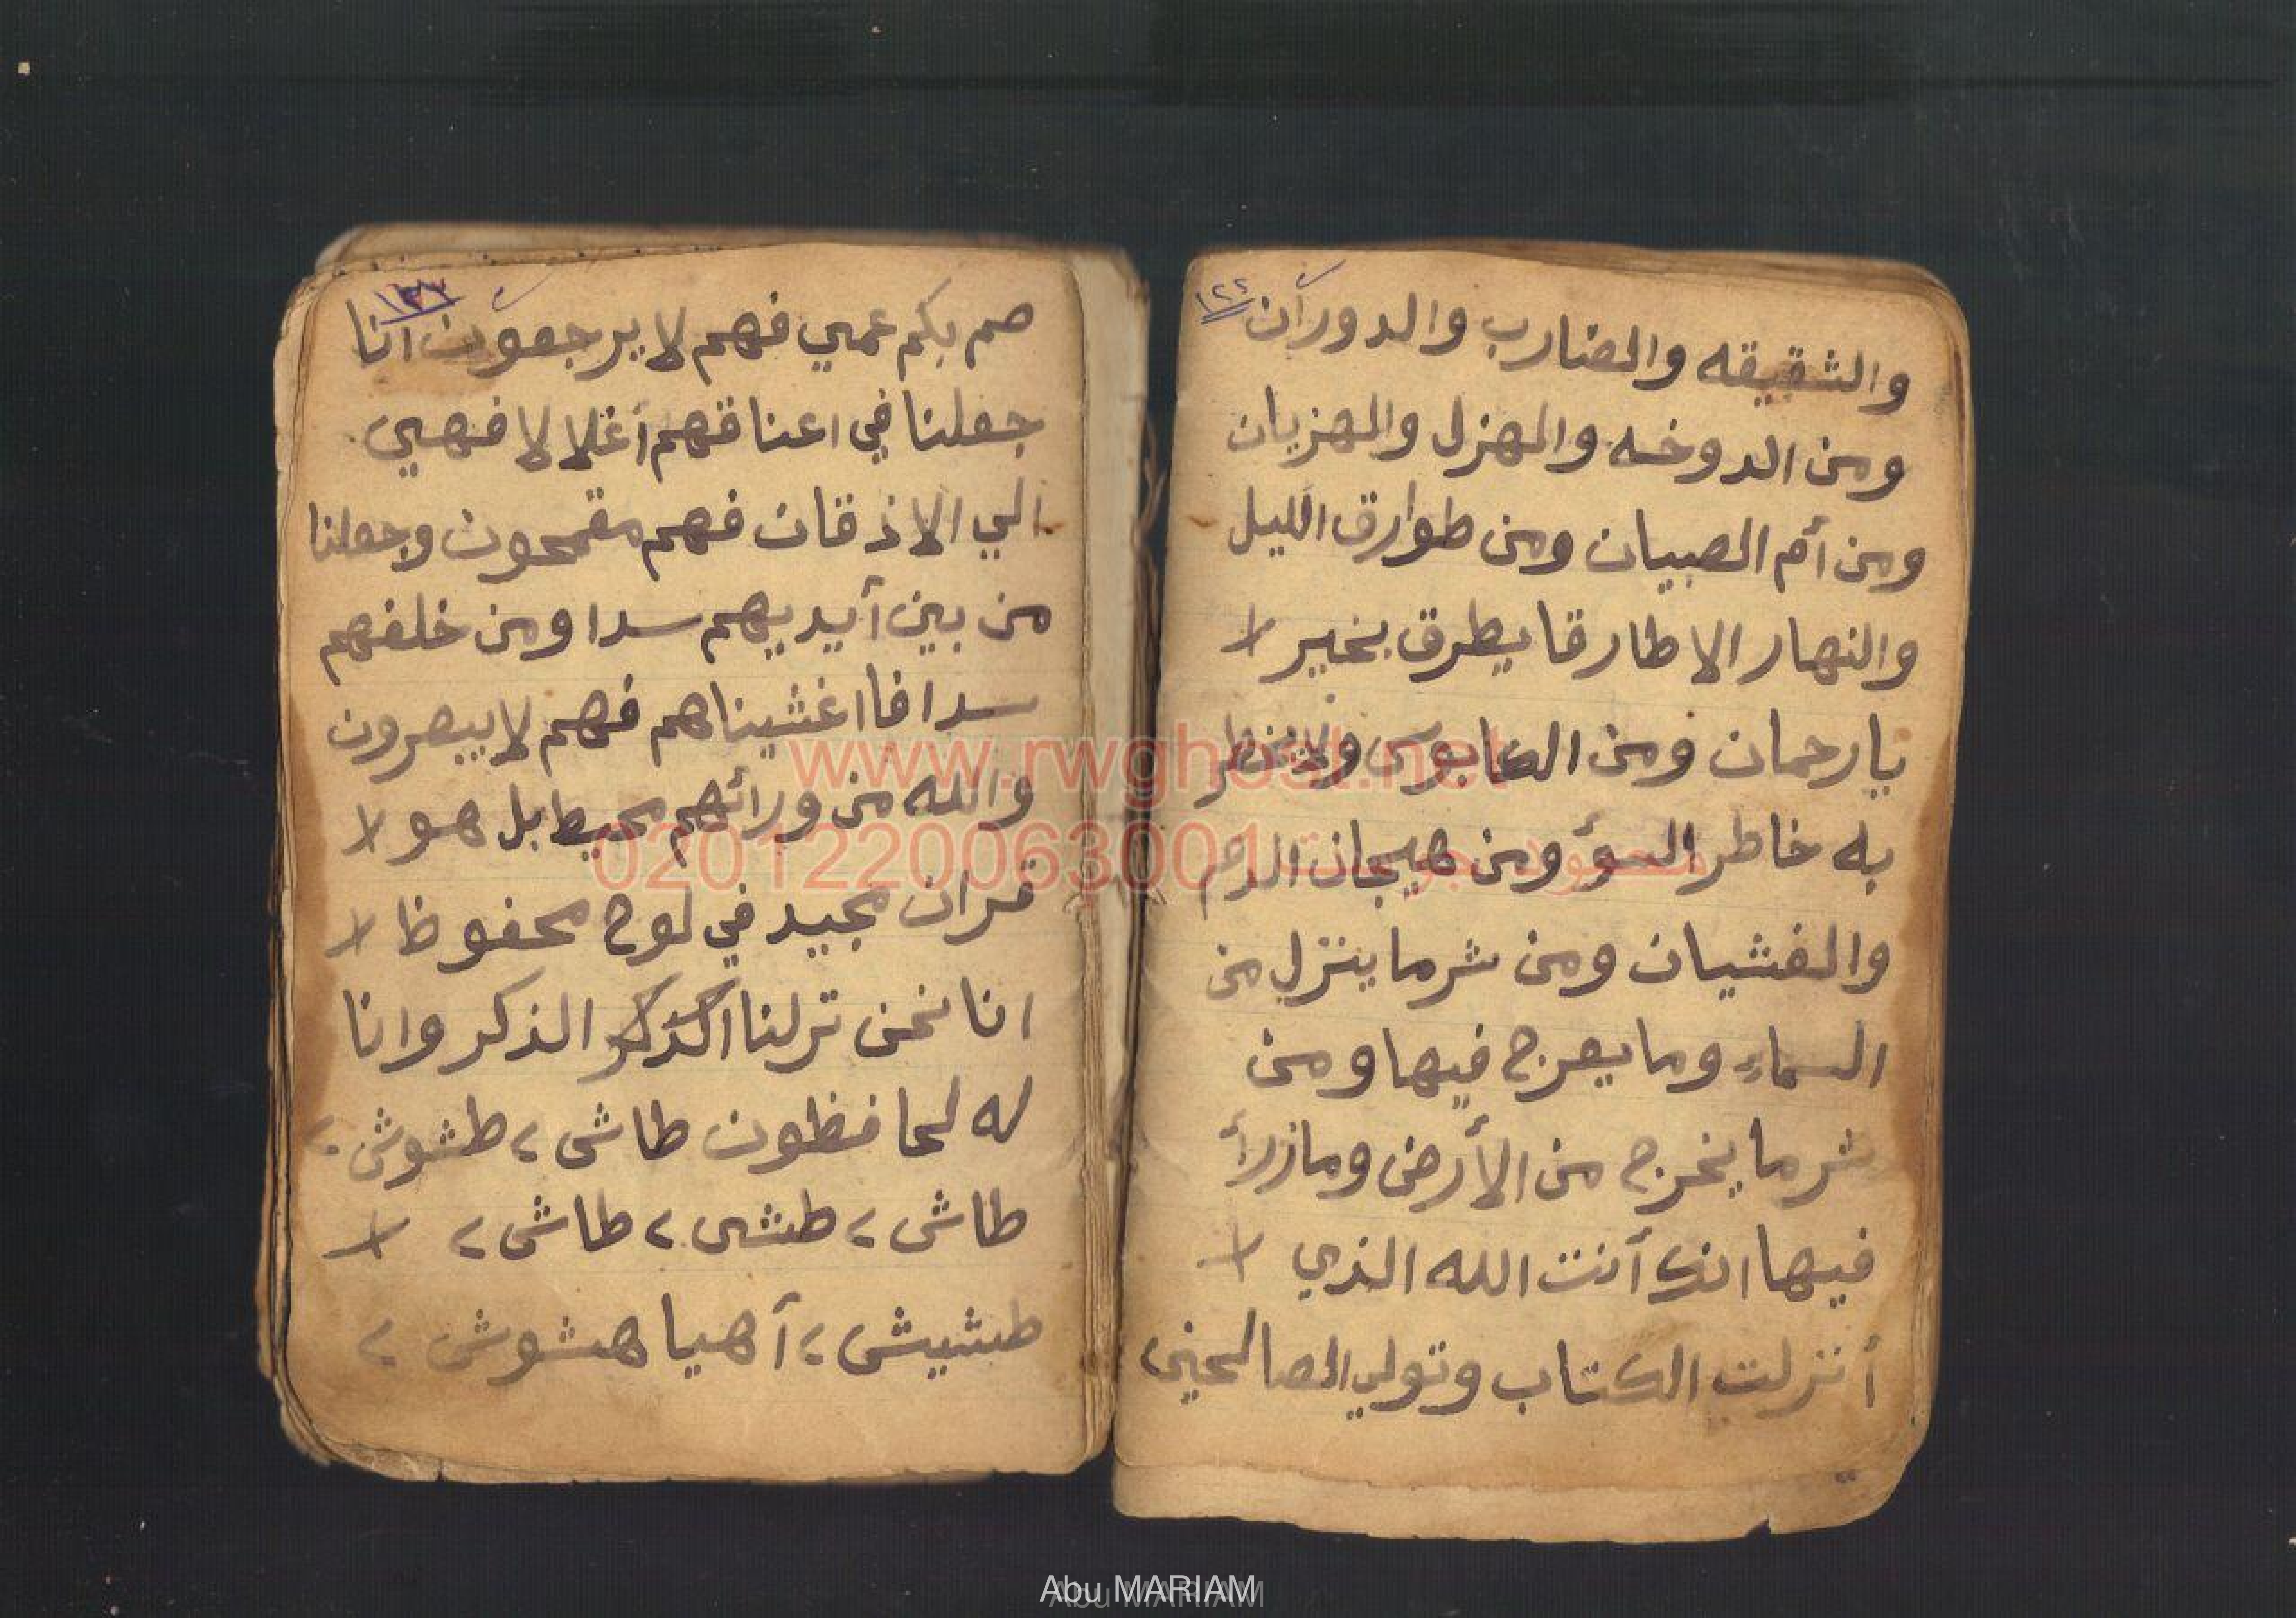 ١٢٢
والشقيقه والضارب والدوران
ومن الدوخه والهزل والهزيان
ومن أم الصبيان ومن طوارق الليل
والنهار الا طارقا يطرق بخير
يا رحمان ومن الكابوس
به خاطر السؤ ومن هيجان الدم
والغشيان ومن شر ما ينزل من
السماء وما يعرج فيها ومن
شر ما يخرج من الأرض وما زرأ
فيها انك أنت الله الذي
أنزلت الكتاب وتولي الصالحين
صم بكم عمي فهم لا يرجعون انا
جعلنا في اعناقهم أغلالا فهي
الي الاذقان فهم مقمحون وجعلنا
من بين أيديهم سدا ومن خلفهم
سدا فااغشيناهم فهم لا يبصرون
والله من ورائهم محيط بل هو
قران مجيد في لوح محفوظ
انا نحن نزلنا الذكر وانا
له لحافظون طاش ٢ طشوش ٢
طاش ٢ طش ٢ طاش ٢
طشيش ٢ آهيا هشوش ٢
www.rwghost.net
0201220063001
Abu MARIAM